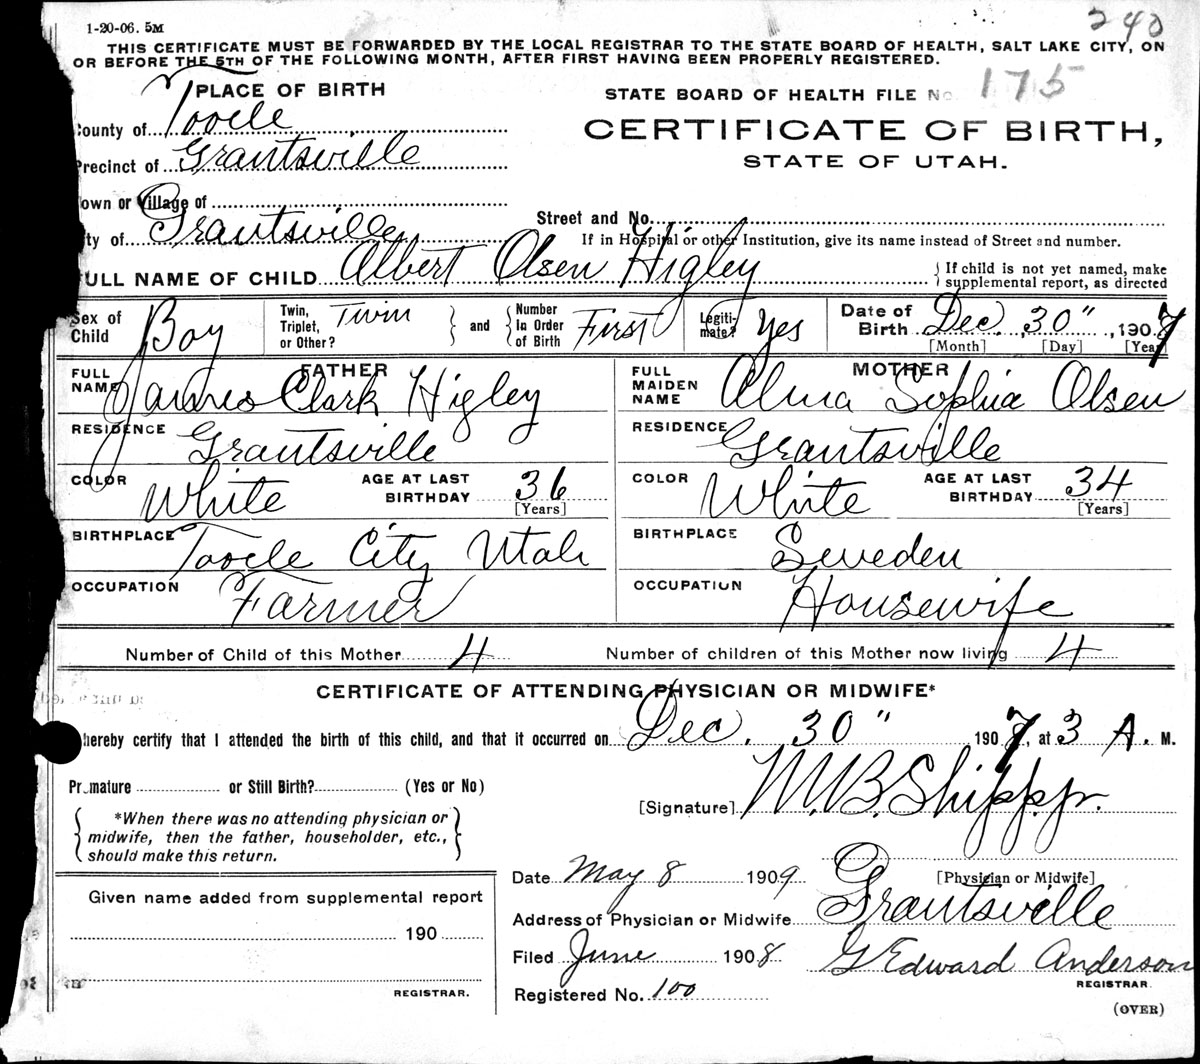 1-20-06. 5M
240
THIS CERTIFICATE MUST BE FORWARDED BY THE LOCAL REGISTRAR TO THE STATE BOARD OF HEALTH, SALT LAKE CITY, ON
OR BEFORE THE 5TH OF THE FOLLOWING MONTH, AFTER FIRST HAVING BEEN PROPERLY REGISTERED.
PLACE OF BIRTH
STATE BOARD OF HEALTH FILE No 175
County of Tooele
CERTIFICATE OF BIRTH,
Precinct of Grantsville
STATE OF UTAH.
own or Village of
Street and No.
ity of Grantsville
If in Hospital or other Institution, give its name instead of Street and number.
ULL NAME OF CHILD Albert Olsen Higley
If child is not yet named, make
supplemental report, as directed
Sex of Child Boy
Twin, Triplet, or Other? Twin
and
Number In Order of Birth First
Legiti-mate? Yes
Date of Birth Dec. 30", 1907
[Month] [Day] [Year]
FATHER
FULL NAME James Clark Higley
MOTHER
FULL MAIDEN NAME Alma Sophia Olsen
RESIDENCE Grantsville
RESIDENCE Grantsville
COLOR White
AGE AT LAST BIRTHDAY 36
[Years]
COLOR White
AGE AT LAST BIRTHDAY 34
[Years]
BIRTHPLACE Tooele City Utah
BIRTHPLACE Sweden
OCCUPATION Farmer
OCCUPATION Housewife
Number of Child of this Mother 4
Number of children of this Mother now living 4
CERTIFICATE OF ATTENDING PHYSICIAN OR MIDWIFE*
hereby certify that I attended the birth of this child, and that it occurred on Dec. 30" 1907, at 3 A. M.
Premature or Still Birth? (Yes or No)
[Signature] W. B. Shipp jr.
*When there was no attending physician or
midwife, then the father, householder, etc.,
should make this return.
[Physician or Midwife]
Date May 8 1909
Given name added from supplemental report
Address of Physician or Midwife Grantsville
190
Filed June 1908
G Edward Anderson
REGISTRAR.
REGISTRAR.
Registered No. 100
(OVER)